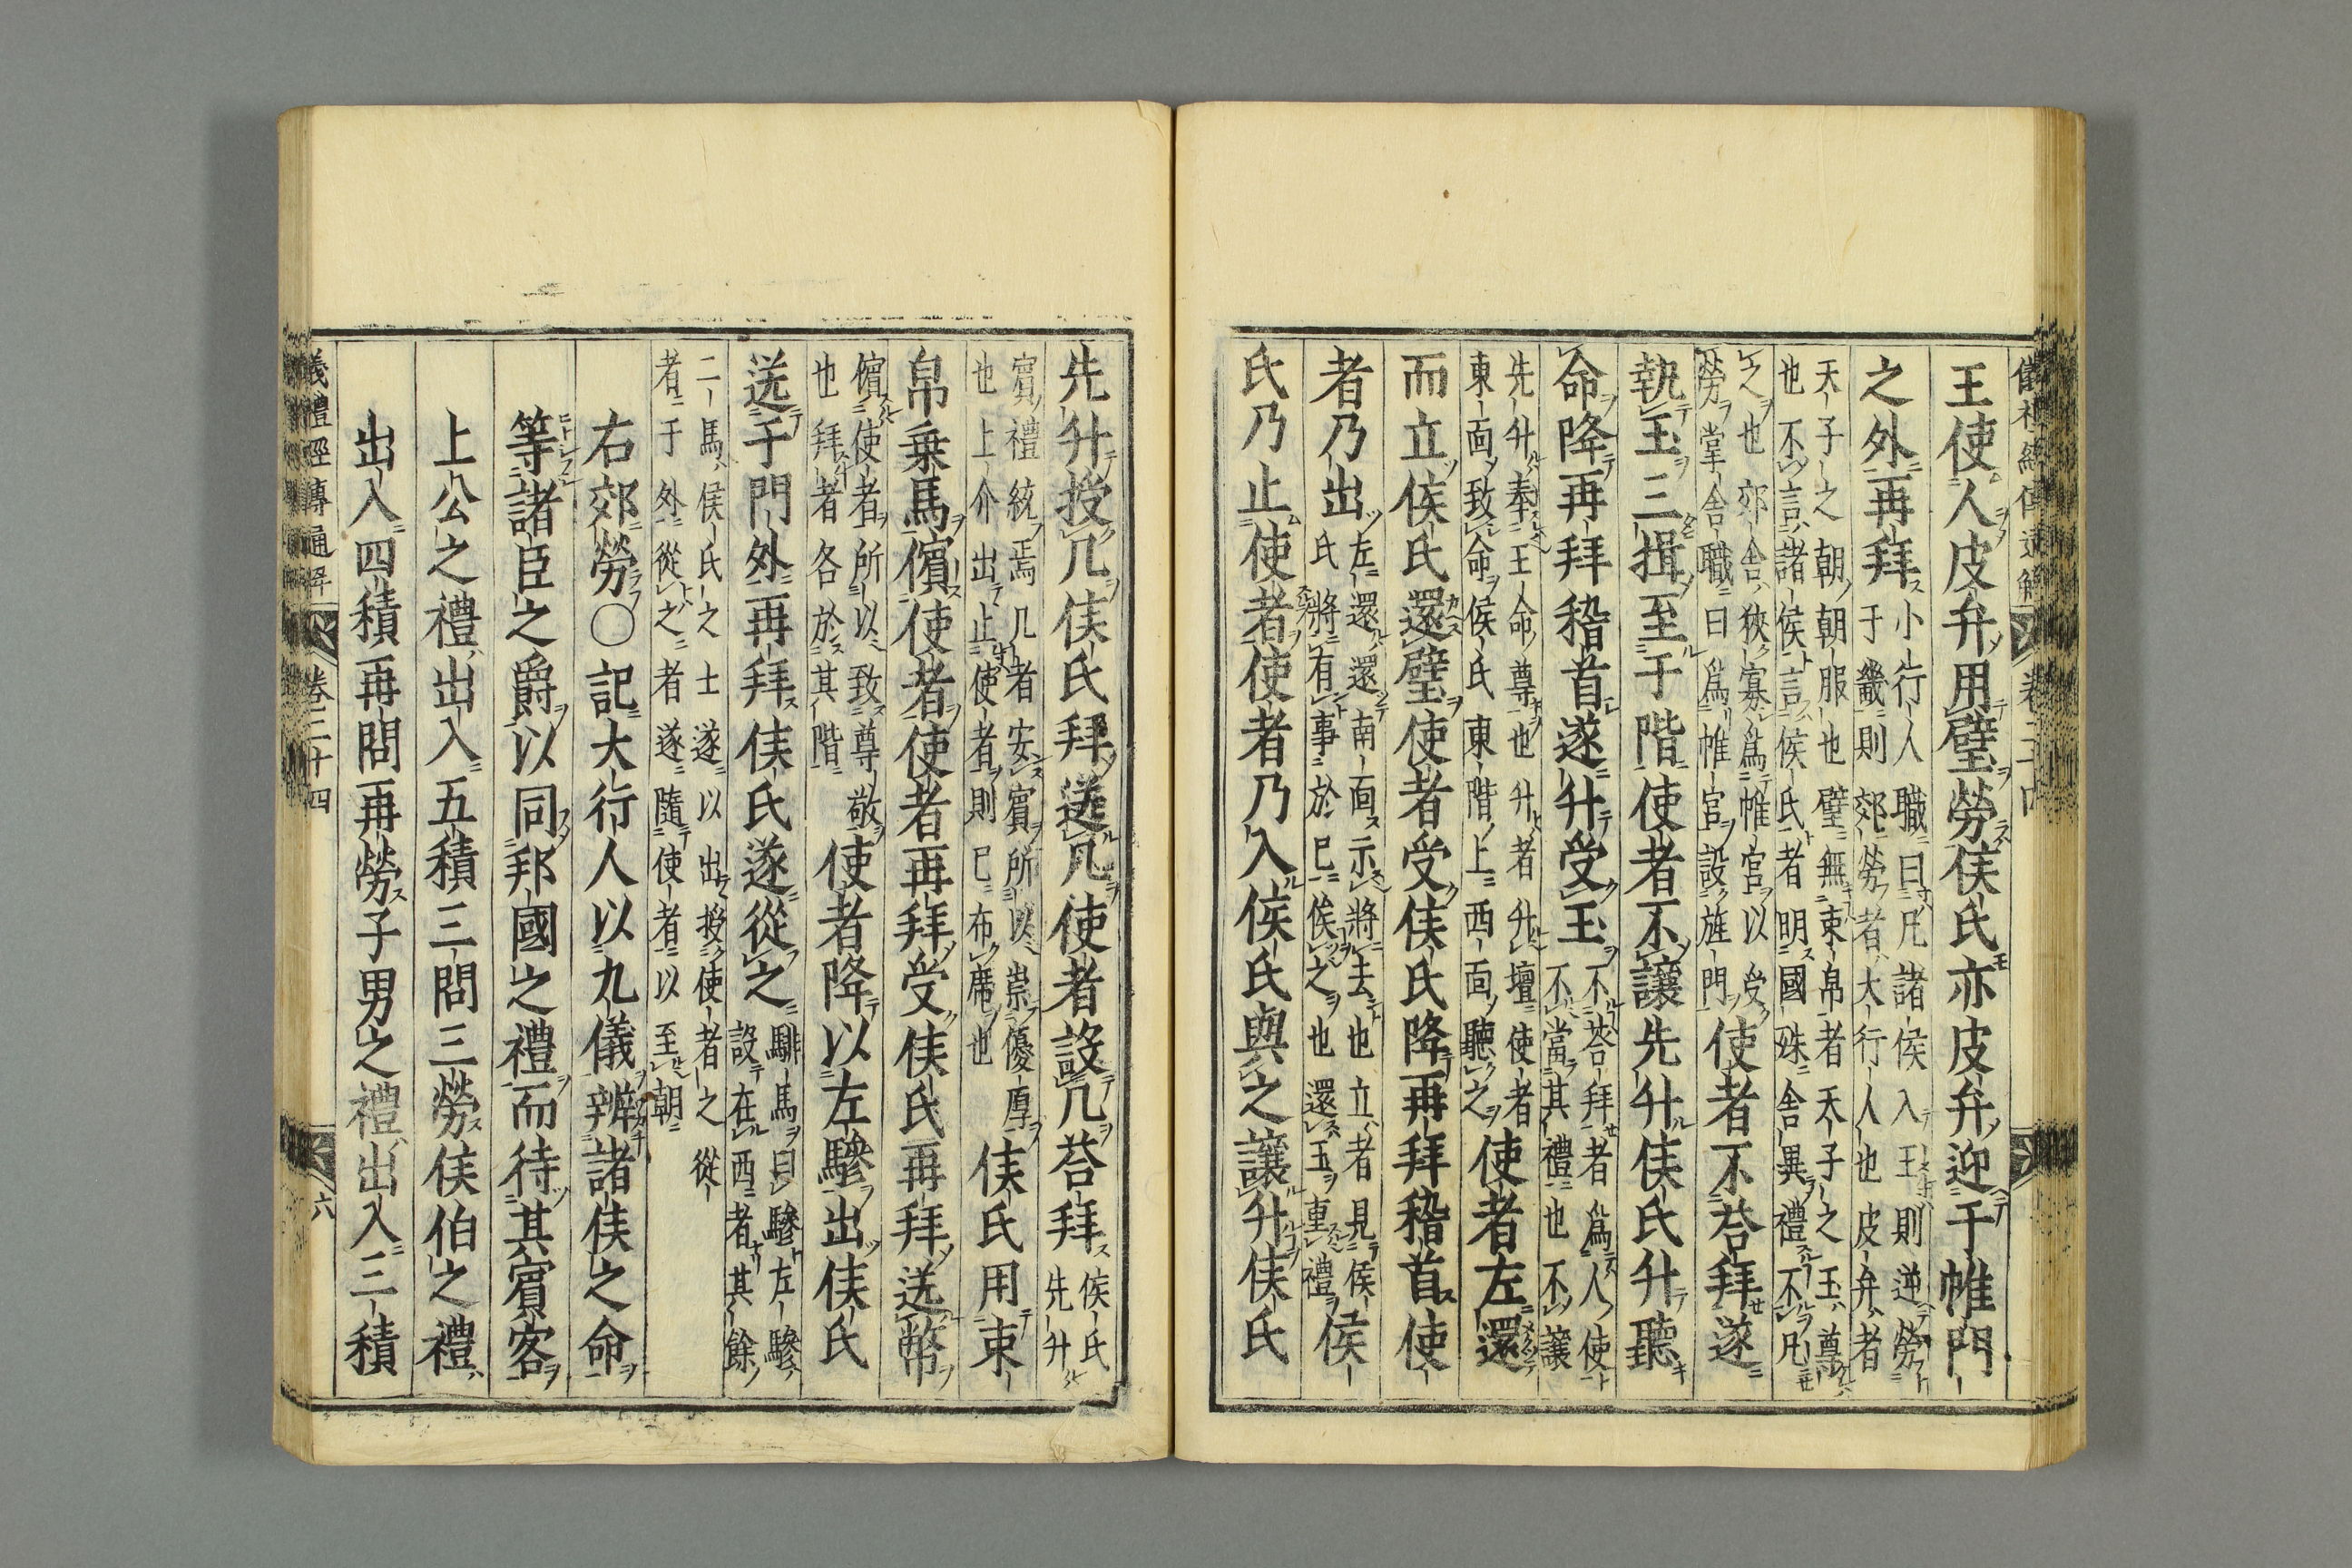 儀禮經傳通解 卷二十四
王使人皮弁用璧勞侯氏亦皮弁迎于帷門
之外再拜小行人職曰凡諸侯入王則逆勞
于畿則郊勞者大行人也皮弁者
天子之朝朝服也璧無束帛者天子之玉尊
也不言諸侯言侯氏者明國殊舍異禮不凡
之也郊舍狹寡爲帷宮以受
勞掌舍職曰爲帷宮設旌門使者不荅拜遂
執玉三揖至于階使者不讓先升侯氏升聽
命降再拜稽首遂升受玉不荅拜者爲人使
不當其禮也不讓
先升奉王命尊也升者升壇使者
東面致命侯氏東階上西面聽之使者左還
而立侯氏還璧使者受侯氏降再拜稽首使
者乃出左還還南面示將去也立者見侯
氏將有事於已俟之也還玉重禮侯
氏乃止使者使者乃入侯氏與之讓升侯氏
先升授几侯氏拜送几使者設几荅拜侯氏
先升
賓禮統焉几者安賓所以崇優厚
也上介出止使者則已布席也侯氏用束
帛乗馬儐使者使者再拜受侯氏再拜送幣
儐使者所以致尊敬
也拜者各於其階使者降以左驂出侯氏
送于門外再拜侯氏遂從之騑馬曰驂左驂
設在西者其餘
二馬侯氏之士遂以出授使者之從
者于外從之者遂隨使者以至朝
右郊勞〇記大行人以九儀辨諸侯之命
等諸臣之爵以同邦國之禮而待其賓客
上公之禮出入五積三問三勞侯伯之禮
出入四積再問再勞子男之禮出入三積
儀禮經傳通解 卷二十四 六